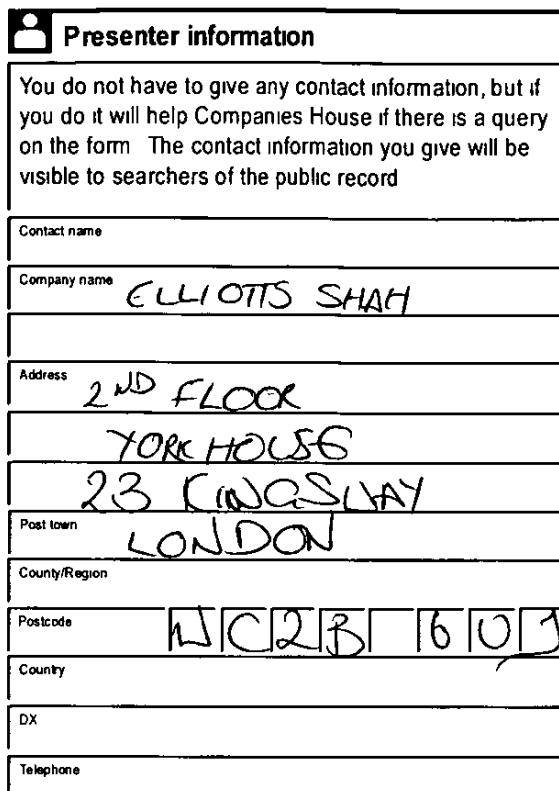 Presenter information
You do not have to give any contact information, but if
you do it will help Companies House if there is a query
on the form The contact information you give will be
visible to searchers of the public record
Contact name
Company name ELLIOTTS SHAH
Address 2ND FLOOR
YORK HOUSE
23 KINGSWAY
Post town LONDON
County/Region
Postcode WC2B 6UJ
Country
DX
Telephone